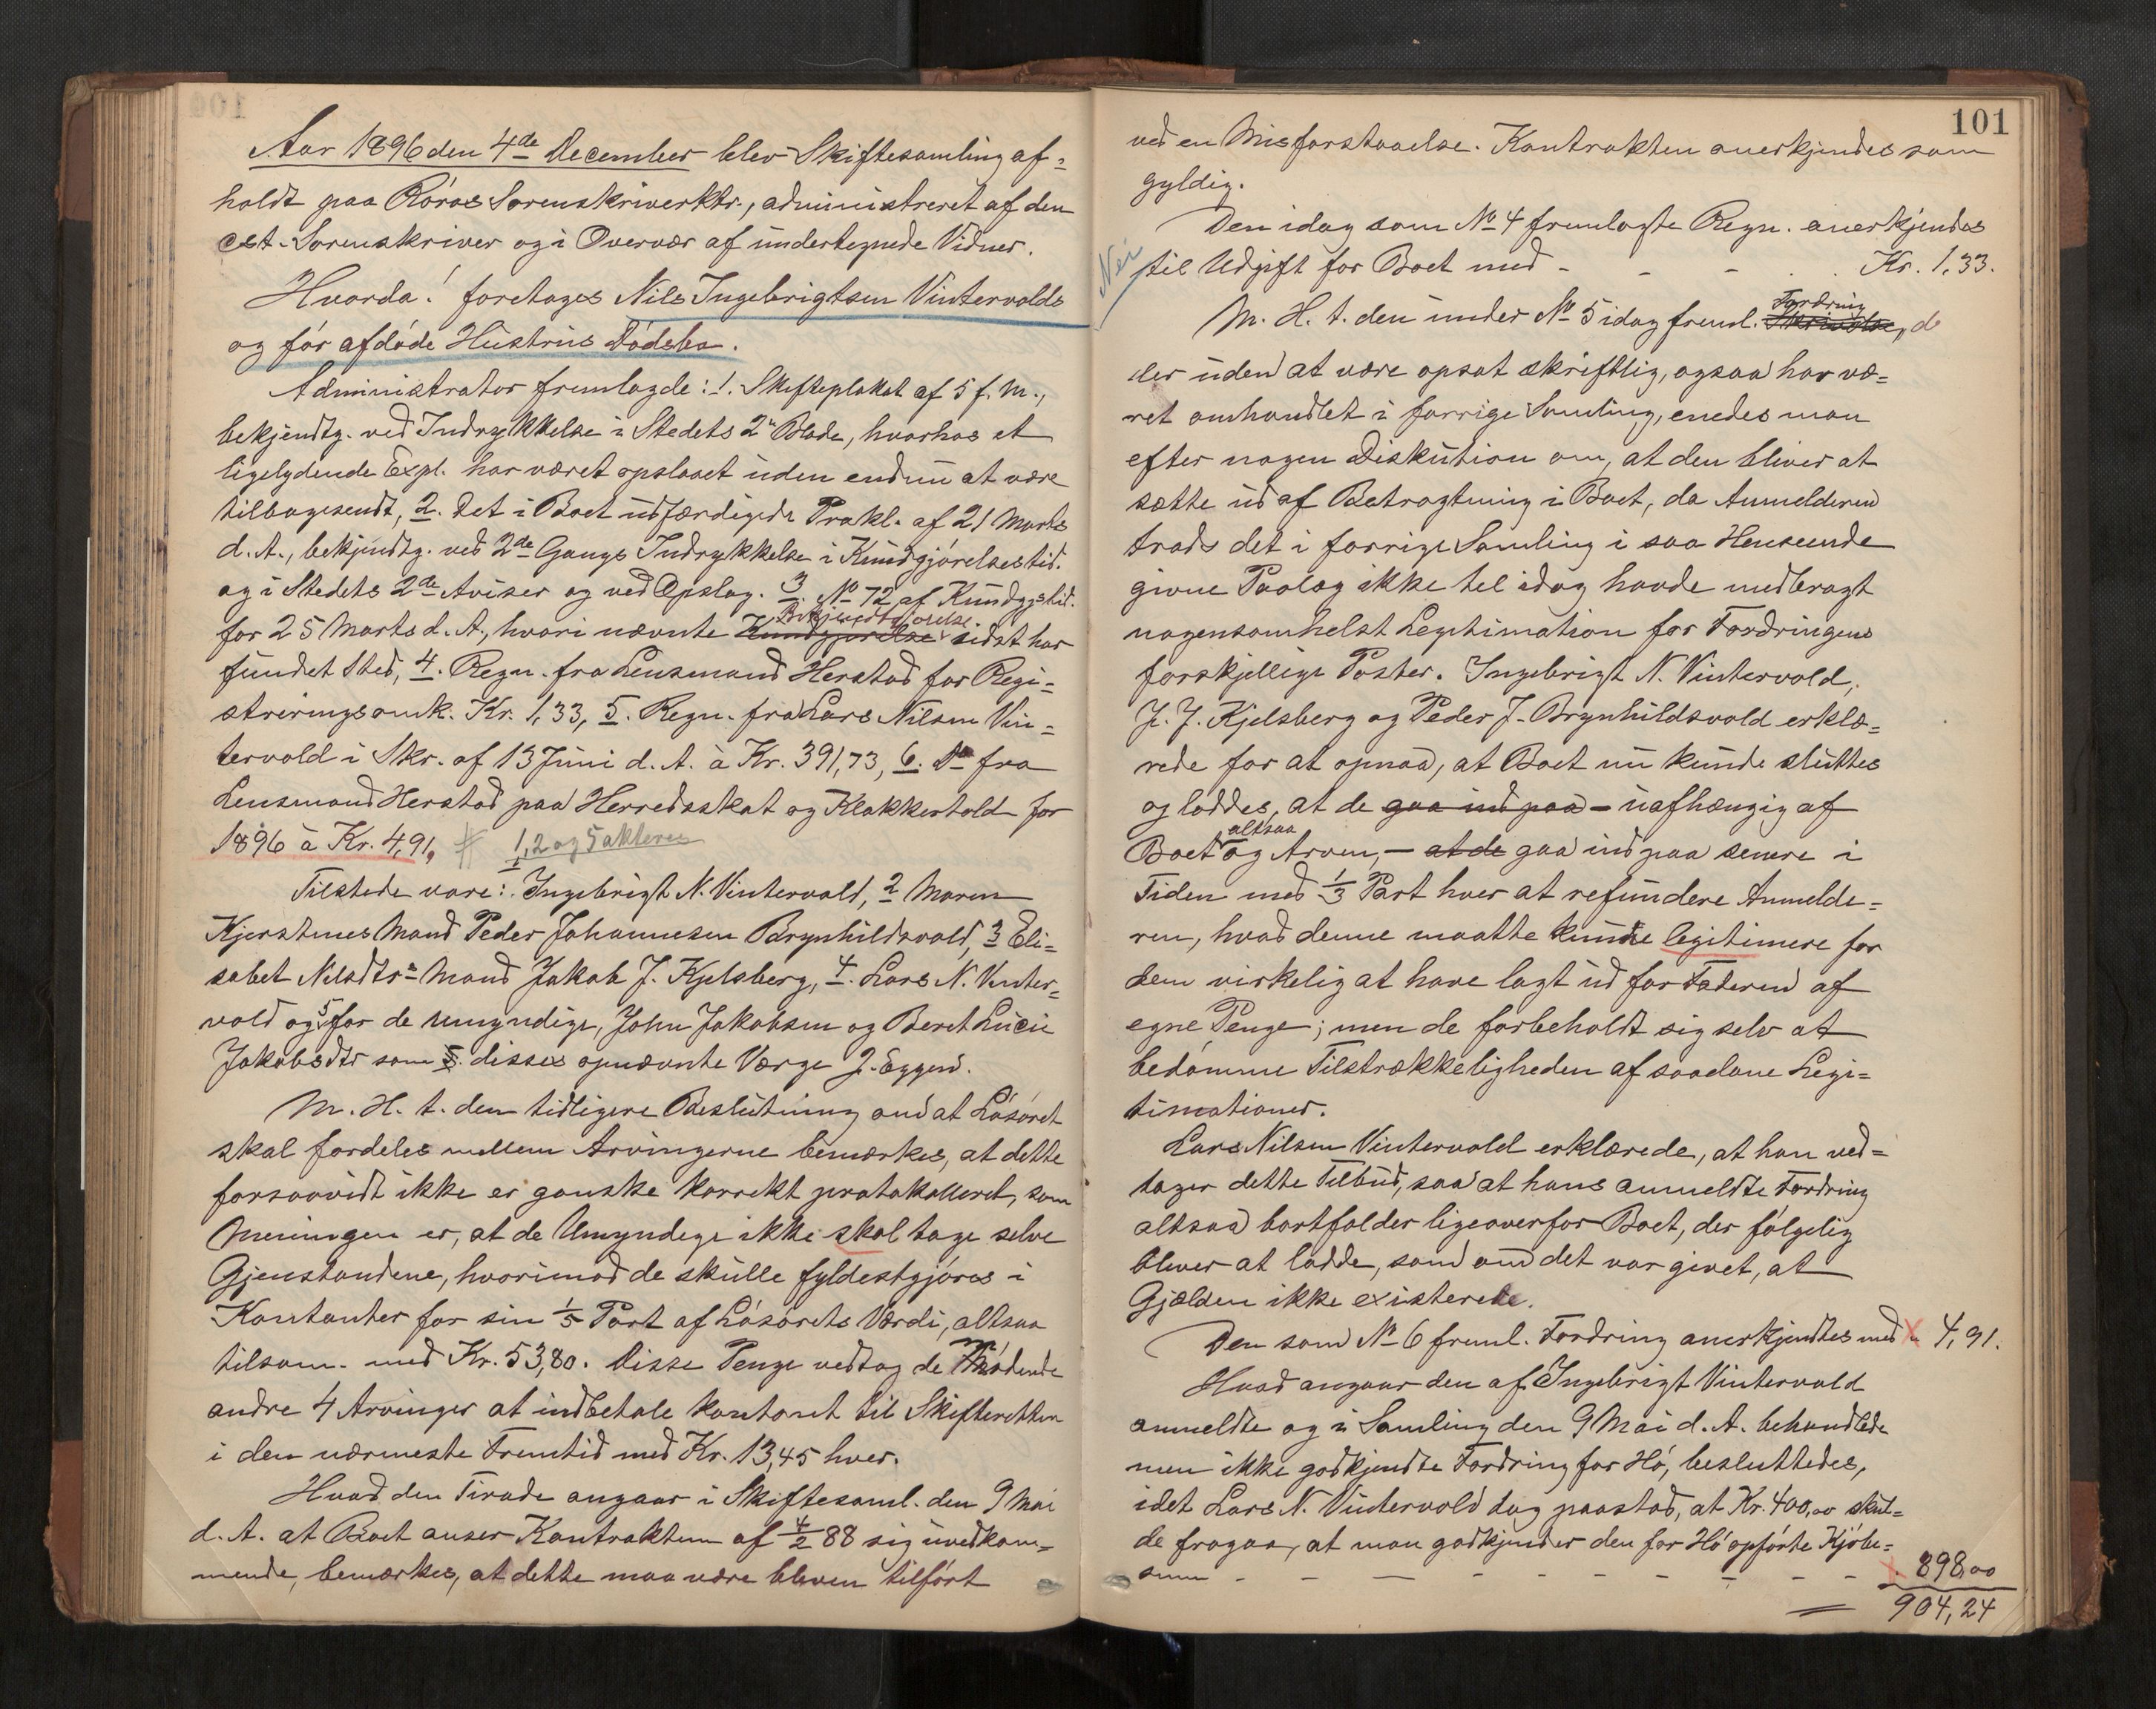 Aar 1896 den 4de December blev Skiftesamling af=
holdt paa Röros Sorenskriverktr., administreret af den
cst. Sorenskriver og i Overvær af undertegnede Vidner.
Hvorda! foretages Nils Ingebrigtsen Vintervolds
og før afdøde Hustrus Dødsbo.
Administrator fremlagde: 1. Skifteplakat af 5 f. M.,
bekjendtg. ved Indrykkelse i Stedets 2de Blade, hvorhos et
ligelydende Expl. har været opslaaet uden endnu at være
tilbagesendt, 2. Det i Boet udfærdigede Prokl. af 21 Marts
d. A., bekjendtg. ved 2de Gangs Indrykkelse i Kundgjørelsestid.
og i Stedets 2de Aviser og ved Opslag. 3. No 72 af Kundgjstid.
for 25 Marts d. A., hvori nævnte Kundgjørelse Bekjendtgjørelse sidst har
fundet Sted, 4. Regn. fra Lensmand Herstad for Regi=
streringsomk. Kr. 1,33, 5. Regn. fra Lars Nilsen Vin=
tervold i Skr. af 13 Juni d. A. à Kr. 391,73, 6. Do fra
Lensmand Herstad paa Herredsskat og Klokkertold for
1896 à Kr. 4,91, # 1, 2 og 5 akteres
Tilstede vare: Ingebrigt N. Vintervold, 2 Maren
Kjerstines Mand Peder Johannesen Brynhildsvold, 3 Eli=
sabet Nilsdtrs Mand Jakob J. Kjelsberg, 4. Lars N. Vinter=
vold og 5 for de umyndige, John Jakobsen og Beret Lucie
Jakobsdtr som 5. disses opnævnte Værge J. Eggen.
M. H. t. den tidligere Beslutning om at Løsøret
skal fordeles mellem Arvingerne bemærkes, at dette
forsaavidt ikke er ganske korrekt protokolleret, som
Meningen er, at de Umyndige ikke skal tage selve
Gjenstandene, hvorimod de skulle fyldestgjøres i
Kontanter for sin 1/5 Part af Løsørets Værdi, altsaa
tilsam. med Kr. 53,80. Disse Penge vedtog de Mødende
andre 4 Arvinger at indbetale kontant til Skifteretten
i den nærmeste Fremtid med Kr. 13,45 hver.
Hvad den Tirade angaar i Skiftesaml. den 9 Mai
d. A. at Boet anser Kontrakten af 4/2 88 sig uvedkom=
mende, bemærkes, at dette maa være bleven tilført
101
ved en Misforstaaelse. Kontrakten anerkjendes som
gyldig.
Den idag som No 4 fremlagte Regn. anerkjendes
Nei
til Udgift for Boet med - - - . . Kr. 1,33.
M. H. t. den under No 5 idag freml. Skrivelse Fordring, d
der uden at være opsat skriftlig, ogsaa har væ=
ret omhandlet i forrige Samling, enedes man
efter nogen Diskution om, at den bliver at
sætte ud af Betragtning i Boet, da Anmelderen
trods det i forrige Samling i saa Henseende
givne Paalæg ikke til idag havde medbragt
nogensomhelst Legitimation for Fordringens
forskjellige Poster. Ingebrigt N. Vintervold,
J. J. Kjelsberg og Peder J. Brynhildsvold erklæ=
rede for at opnaa, at Boet nu kunde sluttes
og loddes, at de gaa ind paa - uafhængig af
Boet altsaa og Arven, - at de gaa ind paa senere i
Tiden med 1/3 Part hver at refundere Anmelde=
ren, hvad denne maatte kunne legitimere for
dem virkelig at have lagt ud for Faderen af
egne Penge; men de forbeholdt sig selv at
bedømme Tilstrækkeligheden af saadane Legi=
timationer.
Lars Nilsen Vintervold erklærede, at han ved=
tager dette Tilbud, saa at hans anmeldte Fordring
altsaa bortfalder ligeoverfor Boet, der følgelig
bliver at lodde, som om det var givet, at
Gjælden ikke existerede.
Den som No 6 freml. Fordring anerkjendtes med " 4,91.
Hvad angaar den af Ingebrigt Vintervold
anmeldte og i Samling den 9 Mai d. A. behandlede
men ikke godkjendte Fordring for Hø, besluttedes,
idet Lars N. Vintervold dog paastod, at Kr. 400,00 skul=
de fragaa, at man godkjender den for Hø opførte Kjøbe=
sum - - - - - - - - - - 898,00
904,24